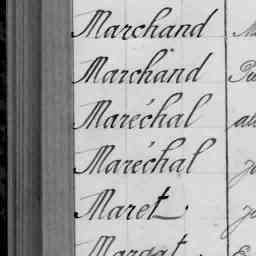 Marchand
Marchand
Maréchal
Maréchal
Maret
Margat